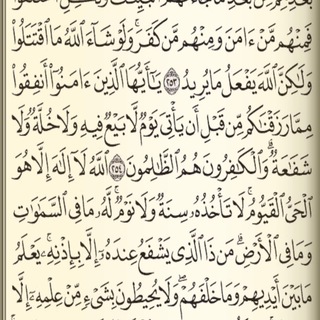 بَعْدِهِم مِّنۢ بَعْدِ مَا جَآءَتْهُمُ ٱلْبَيِّنَٰتُ وَلَٰكِنِ ٱخْتَلَفُوا۟
فَمِنْهُم مَّنْ ءَامَنَ وَمِنْهُم مَّن كَفَرَ ۚ وَلَوْ شَآءَ ٱللَّهُ مَا ٱقْتَتَلُوا۟
وَلَٰكِنَّ ٱللَّهَ يَفْعَلُ مَا يُرِيدُ ٢٥٣ يَٰٓأَيُّهَا ٱلَّذِينَ ءَامَنُوٓا۟ أَنفِقُوا۟
مِمَّا رَزَقْنَٰكُم مِّن قَبْلِ أَن يَأْتِىَ يَوْمٌ لَّا بَيْعٌ فِيهِ وَلَا خُلَّةٌ وَلَا
شَفَٰعَةٌ ۗ وَٱلْكَٰفِرُونَ هُمُ ٱلظَّٰلِمُونَ ٢٥٤ ٱللَّهُ لَآ إِلَٰهَ إِلَّا هُوَ
ٱلْحَىُّ ٱلْقَيُّومُ ۚ لَا تَأْخُذُهُۥ سِنَةٌ وَلَا نَوْمٌ ۚ لَّهُۥ مَا فِى ٱلسَّمَٰوَٰتِ
وَمَا فِى ٱلْأَرْضِ ۗ مَن ذَا ٱلَّذِى يَشْفَعُ عِندَهُۥٓ إِلَّا بِإِذْنِهِۦ ۚ يَعْلَمُ
مَا بَيْنَ أَيْدِيهِمْ وَمَا خَلْفَهُمْ ۖ وَلَا يُحِيطُونَ بِشَىْءٍ مِّنْ عِلْمِهِۦٓ إِلَّا